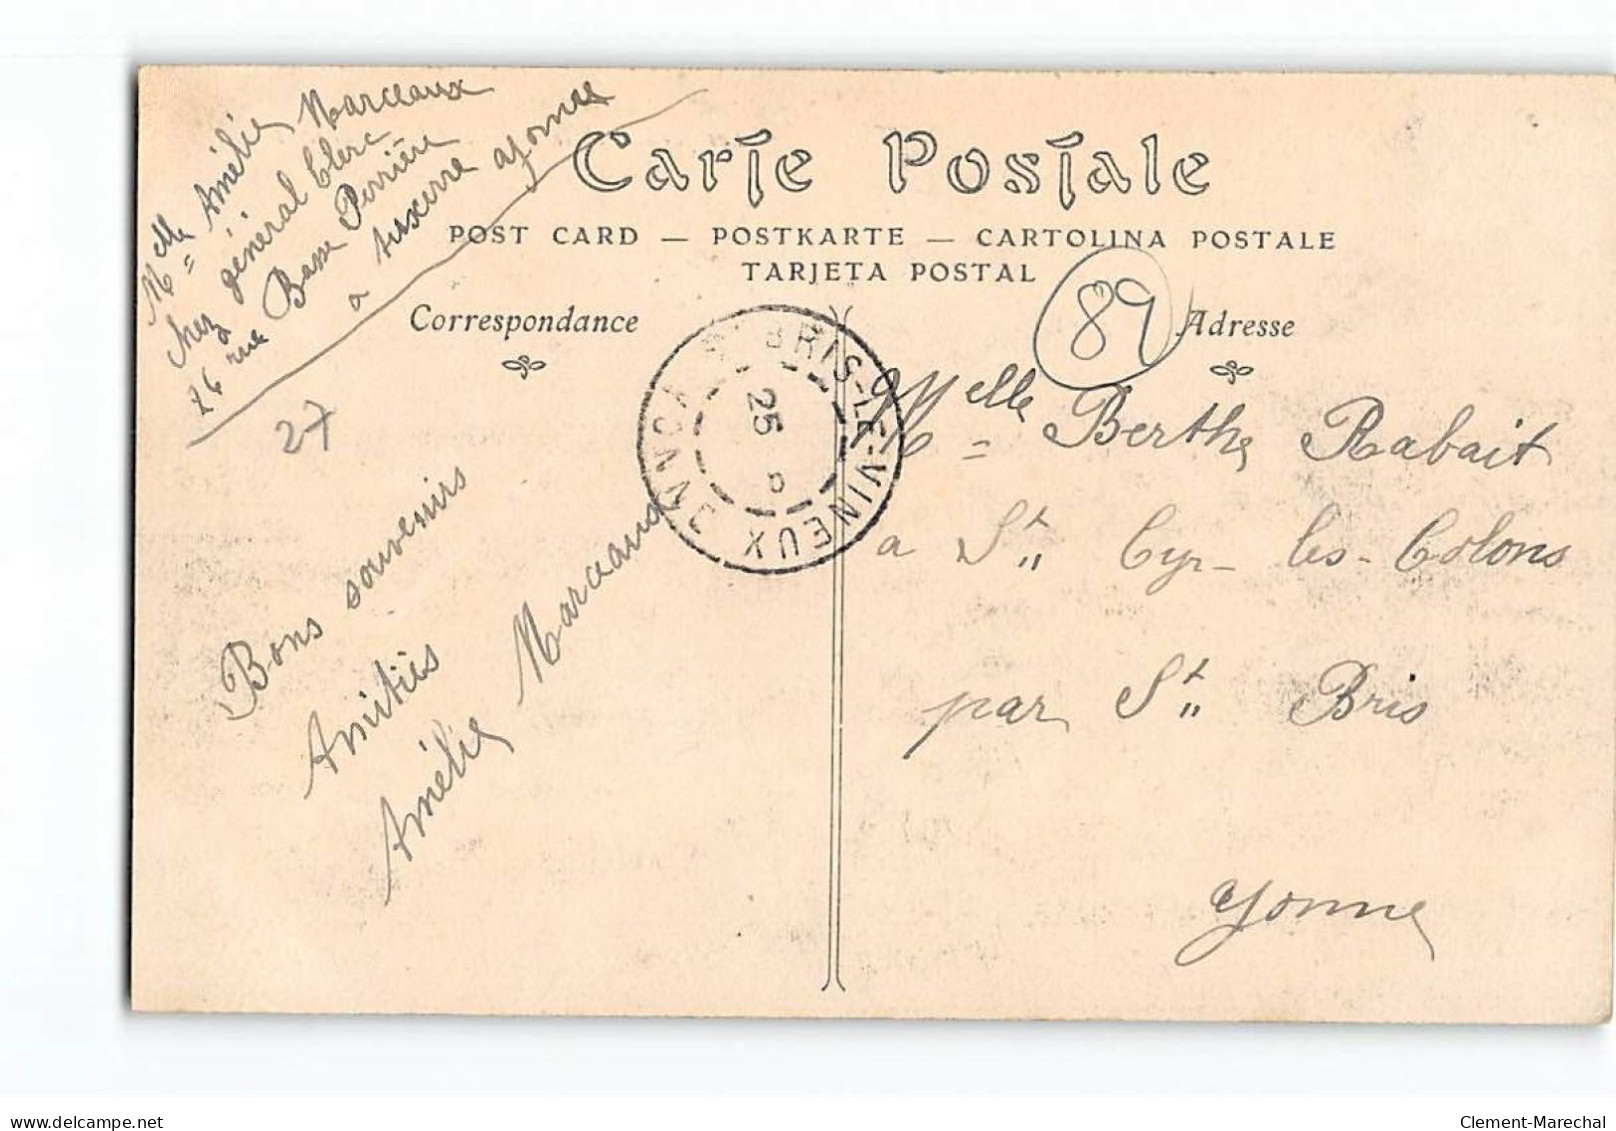 Melle Amélie Marceaux
chez général Clerc
26 rue Basse Perrière
a Auxerre Yonne
Carte Postale
POST CARD — POSTKARTE — CARTOLINA POSTALE
TARJETA POSTAL
Correspondance
Adresse
89
27
BRIS-LE-VINEUX
YONNE
25
Bons souvenirs
Amitiés
Amélie Marceaux
Melle Berthe Rabait
a St Cyr-les-Colons
par St Bris
Yonne
delcampe.net
Clement-Marechal